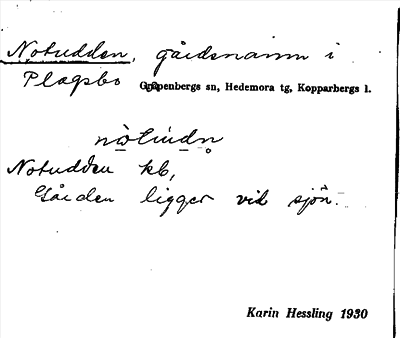 Notudden, gårdsnamn i
Plogsbo Garpenbergs sn, Hedemora tg, Kopparbergs l.
Notudden kb,
Gården ligger vid sjön.
Karin Hessling 1930